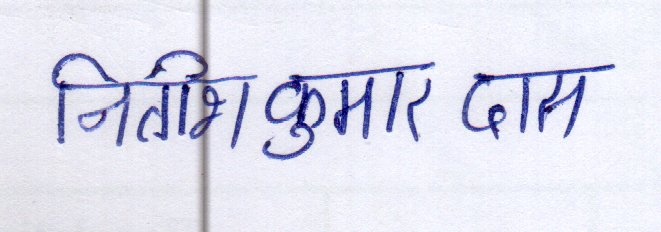 नितीश कुमार दास